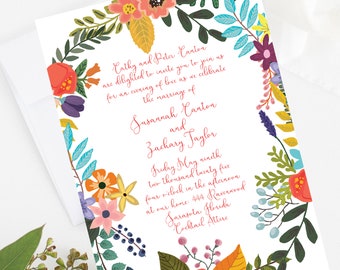 Cathy and Peter Canton
are delighted to invite you to join us
for an evening of love as we celebrate
the marriage of
Susannah Canton
and
Zachary Taylor
Friday May ninth
two thousand twenty five
four o'clock in the afternoon
at our home 444 Rosewood
Sarasota Florida
Cocktail Attire